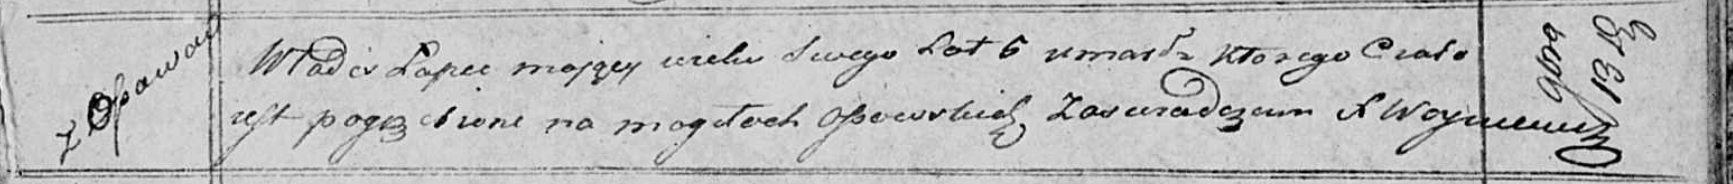 z Osowa
Władis Łapec mający wieku swego Lat 6 umarł Którego Ciało
jest pogrzebione na mogiłach Osowskich Zaświadczam X Woyniewicz
9bra 13 D